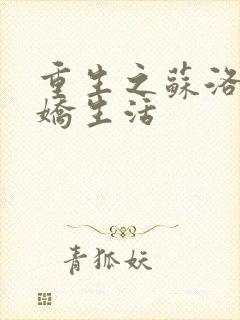 重生之蘇洛
嬌生活
青狐妖